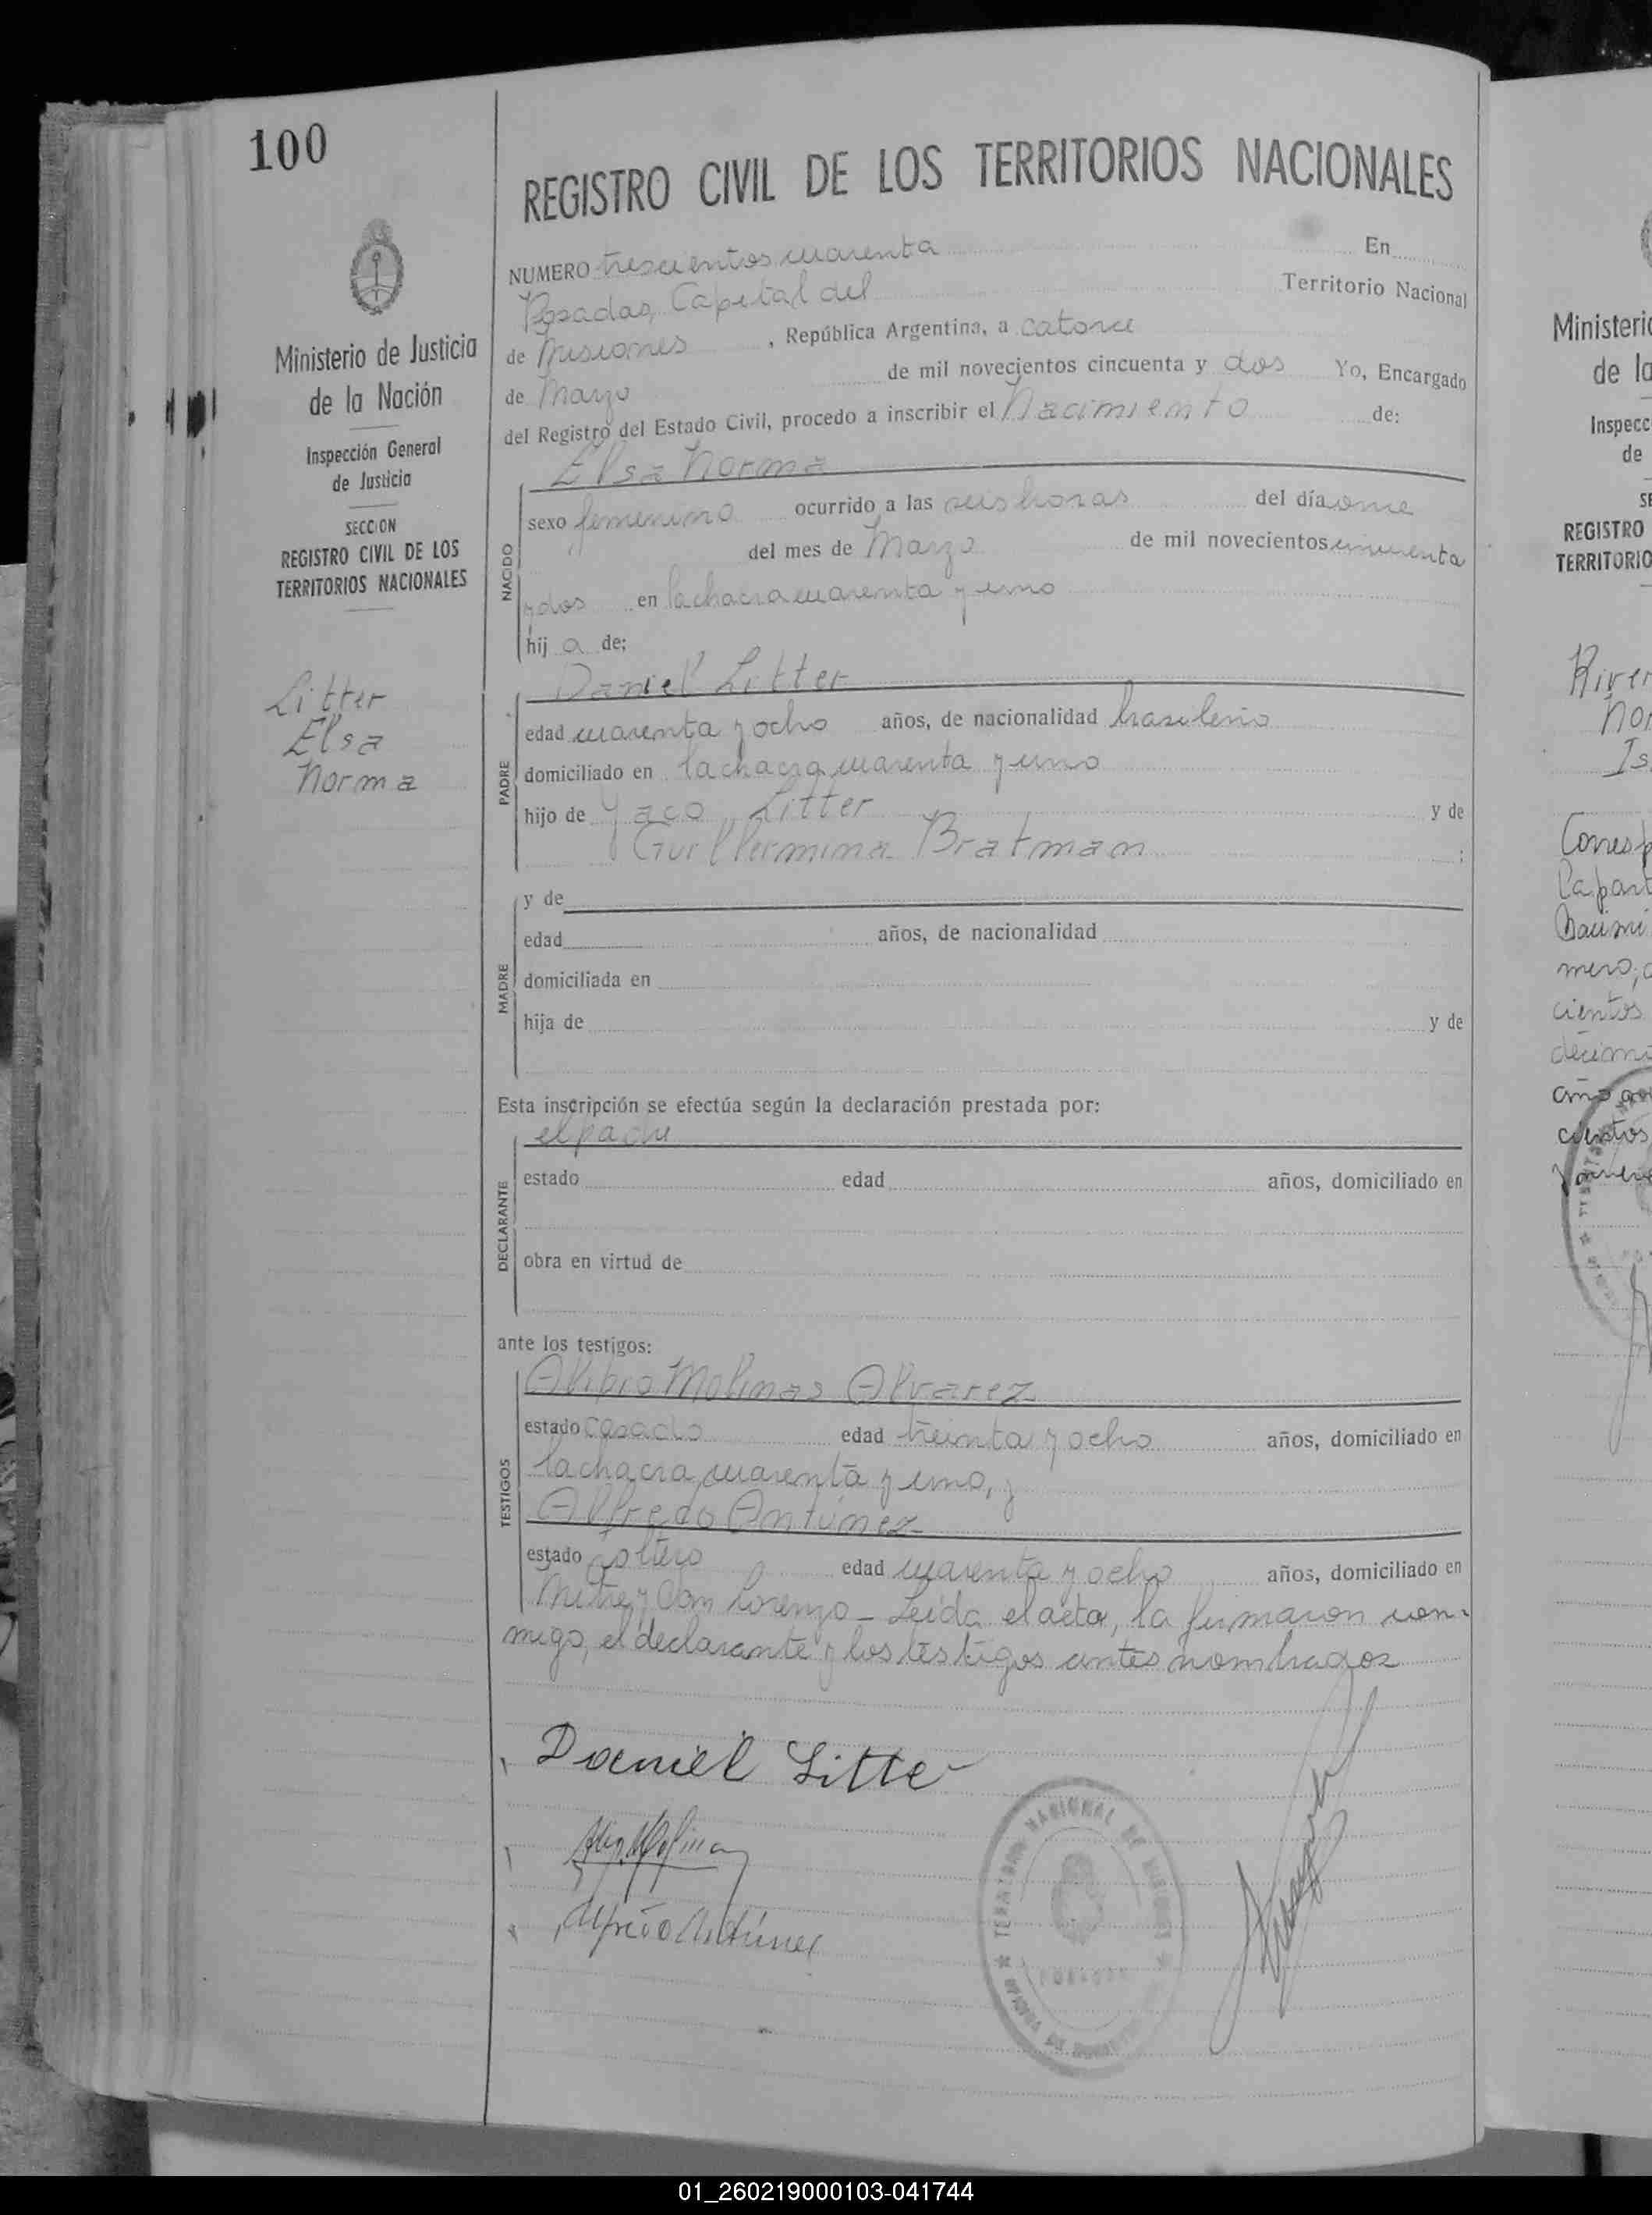 100
REGISTRO CIVIL DE LOS TERRITORIOS NACIONALES
Ministerio de Justicia
de la Nación
Inspección General
de Justicia
SECCION
REGISTRO CIVIL DE LOS
TERRITORIOS NACIONALES
Litter
Elsa
Norma
NUMERO trescientos cuarenta En
Posadas, Capital del Territorio Nacional
de Misiones , República Argentina, a catorce
de Marzo de mil novecientos cincuenta y dos Yo, Encargado
del Registro del Estado Civil, procedo a inscribir el Nacimiento de:
Elsa Norma
NACIDO
sexo femenino ocurrido a las seis horas del día once
del mes de Marzo de mil novecientos cincuenta
y dos en la chacra cuarenta y uno
hij a de:
Daniel Litter
PADRE
edad cuarenta y ocho años, de nacionalidad brasileño
domiciliado en la chacra cuarenta y uno
hijo de Yaco Litter y de
Guillermina Bratman ;
MADRE
y de
edad años, de nacionalidad
domiciliada en
hija de y de
Esta inscripción se efectúa según la declaración prestada por:
el padre
DECLARANTE
estado edad años, domiciliado en
obra en virtud de
ante los testigos:
Molinas Alvarez
TESTIGOS
estado casado edad treinta y ocho años, domiciliado en
la chacra cuarenta y uno, y
Alfredo Antúnez
estado soltero edad cuarenta y ocho años, domiciliado en
Mitre y San Lorenzo - Leída el acta, la firmaron con-
migo, el declarante y los testigos antes nombrados
Daniel Litter
Alfredo Antúnez
TERRITORIO NACIONAL DE MISIONES
POSADAS
Ministerio
de la
Inspecc
de
SE
REGISTRO
TERRITORIO
River
Nor
Is
Corresp
La part
Nacimi
mero,
cientos
décimo
año
cientos
01_260219000103-041744